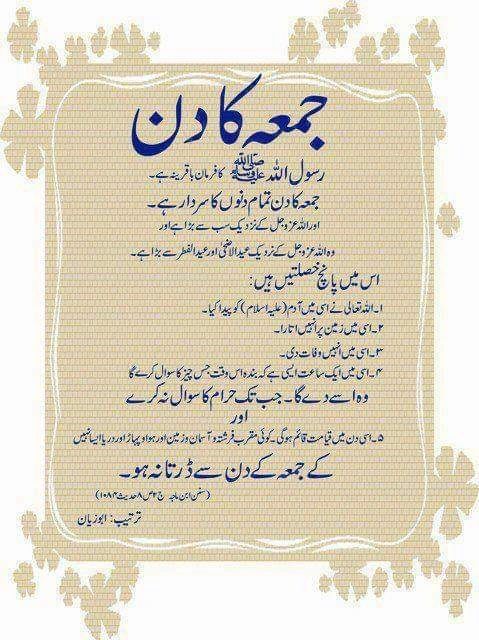 جمعہ کا دن
رسول اللہ ﷺ کا فرمان باقرینہ ہے۔
جمعہ کا دن تمام دنوں کا سردار ہے۔
اور اللہ عزوجل کے نزدیک سب سے بڑا ہے اور
وہ اللہ عزوجل کے نزدیک عیدالاضحیٰ اور عیدالفطر سے بڑا ہے۔
اس میں پانچ خصلتیں ہیں:
۱۔ اللہ تعالیٰ نے اسی میں آدم (علیہ اسلام) کو پیدا کیا۔
۲۔ اسی میں زمین پر انہیں اتارا۔
۳۔ اسی میں انہیں وفات دی۔
۴۔ اسی میں ایک ساعت ایسی ہے کہ بندہ اس وقت جس چیز کا سوال کرے گا
وہ اسے دے گا۔ جب تک حرام کا سوال نہ کرے
اور
۵۔ اسی دن میں قیامت قائم ہوگی۔ کوئی مقرب فرشتہ و آسمان و زمین اور ہوا و پہاڑ اور دریا ایسا نہیں
کے جمعہ کے دن سے ڈرتا نہ ہو۔
(سنن ابن ماجہ ج ۲ ص ۸ حدیث ۱۰۸۴)
ترتیب: ابوزیان